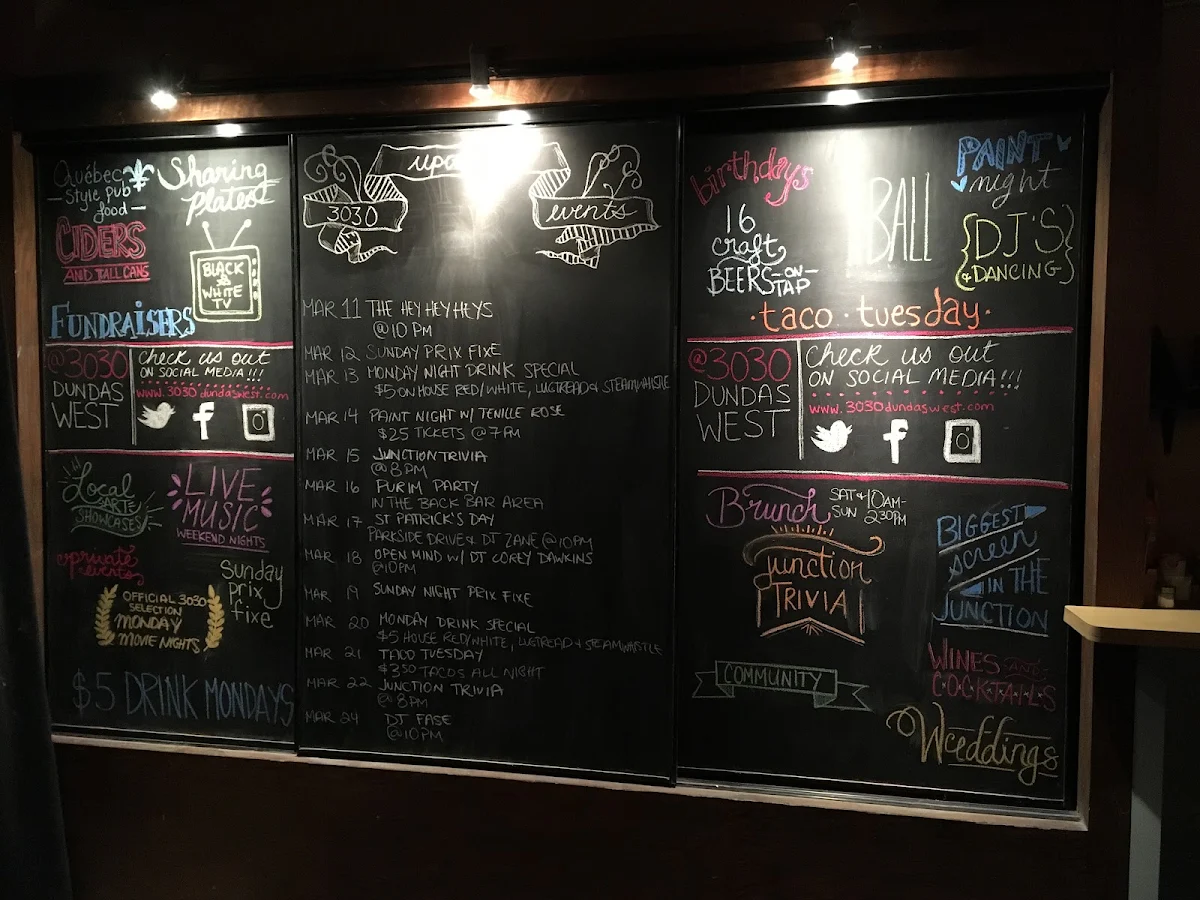 Québec
Style Pub
food
Sharing
Plates
CIDERS
AND TALL CANS
BLACK
&
WHITE
TV
FUNDRAISERS
@3030
DUNDAS
WEST
check us out
ON SOCIAL MEDIA!!!
www.3030dundaswest.com
f
Local
ART
SHOWCASES
LIVE
MUSIC
WEEKEND NIGHTS
private
events
Sunday
prix
fixe
OFFICIAL 3030
SELECTION
MONDAY
MOVIE NIGHTS
$5 DRINK MONDAYS
3030
events
MAR 11 THE HEY HEY HEYS
@10 PM
MAR 12 SUNDAY PRIX FIXE
MAR 13 MONDAY NIGHT DRINK SPECIAL
$5 ON HOUSE RED/WHITE, LUGTREAD & STEAMWHISTLE
MAR 14 PAINT NIGHT W/ TENILLE ROSE
$25 TICKETS @ 7 PM
MAR 15 JUNCTION TRIVIA
@ 8 PM
MAR 16 PURIM PARTY
IN THE BACK BAR AREA
MAR 17 ST PATRICK'S DAY
PARKSIDE DRIVE & DJ ZANE @ 10PM
MAR 18 OPEN MIND W/ DJ COREY DAWKINS
@10PM
MAR 19 SUNDAY NIGHT PRIX FIXE
MAR 20 MONDAY DRINK SPECIAL
$5 HOUSE RED/WHITE, LUGTREAD & STEAMWHISTLE
MAR 21 TACO TUESDAY
$3.50 TACOS ALL NIGHT
MAR 22 JUNCTION TRIVIA
@ 8PM
MAR 24 DJ FASE
@10PM
birthdays
16
craft
BEERS -ON-
TAP
BALL
PAINT
night
{DJ'S}
& DANCING
·taco·tuesday·
@3030
DUNDAS
WEST
check us out
ON SOCIAL MEDIA!!!
www.3030dundaswest.com
f
Brunch
SAT & 10AM-
SUN 230PM
junction
TRIVIA
BIGGEST
screen
IN THE
JUNCTION
COMMUNITY
WINES AND
COCKTAILS
Weddings